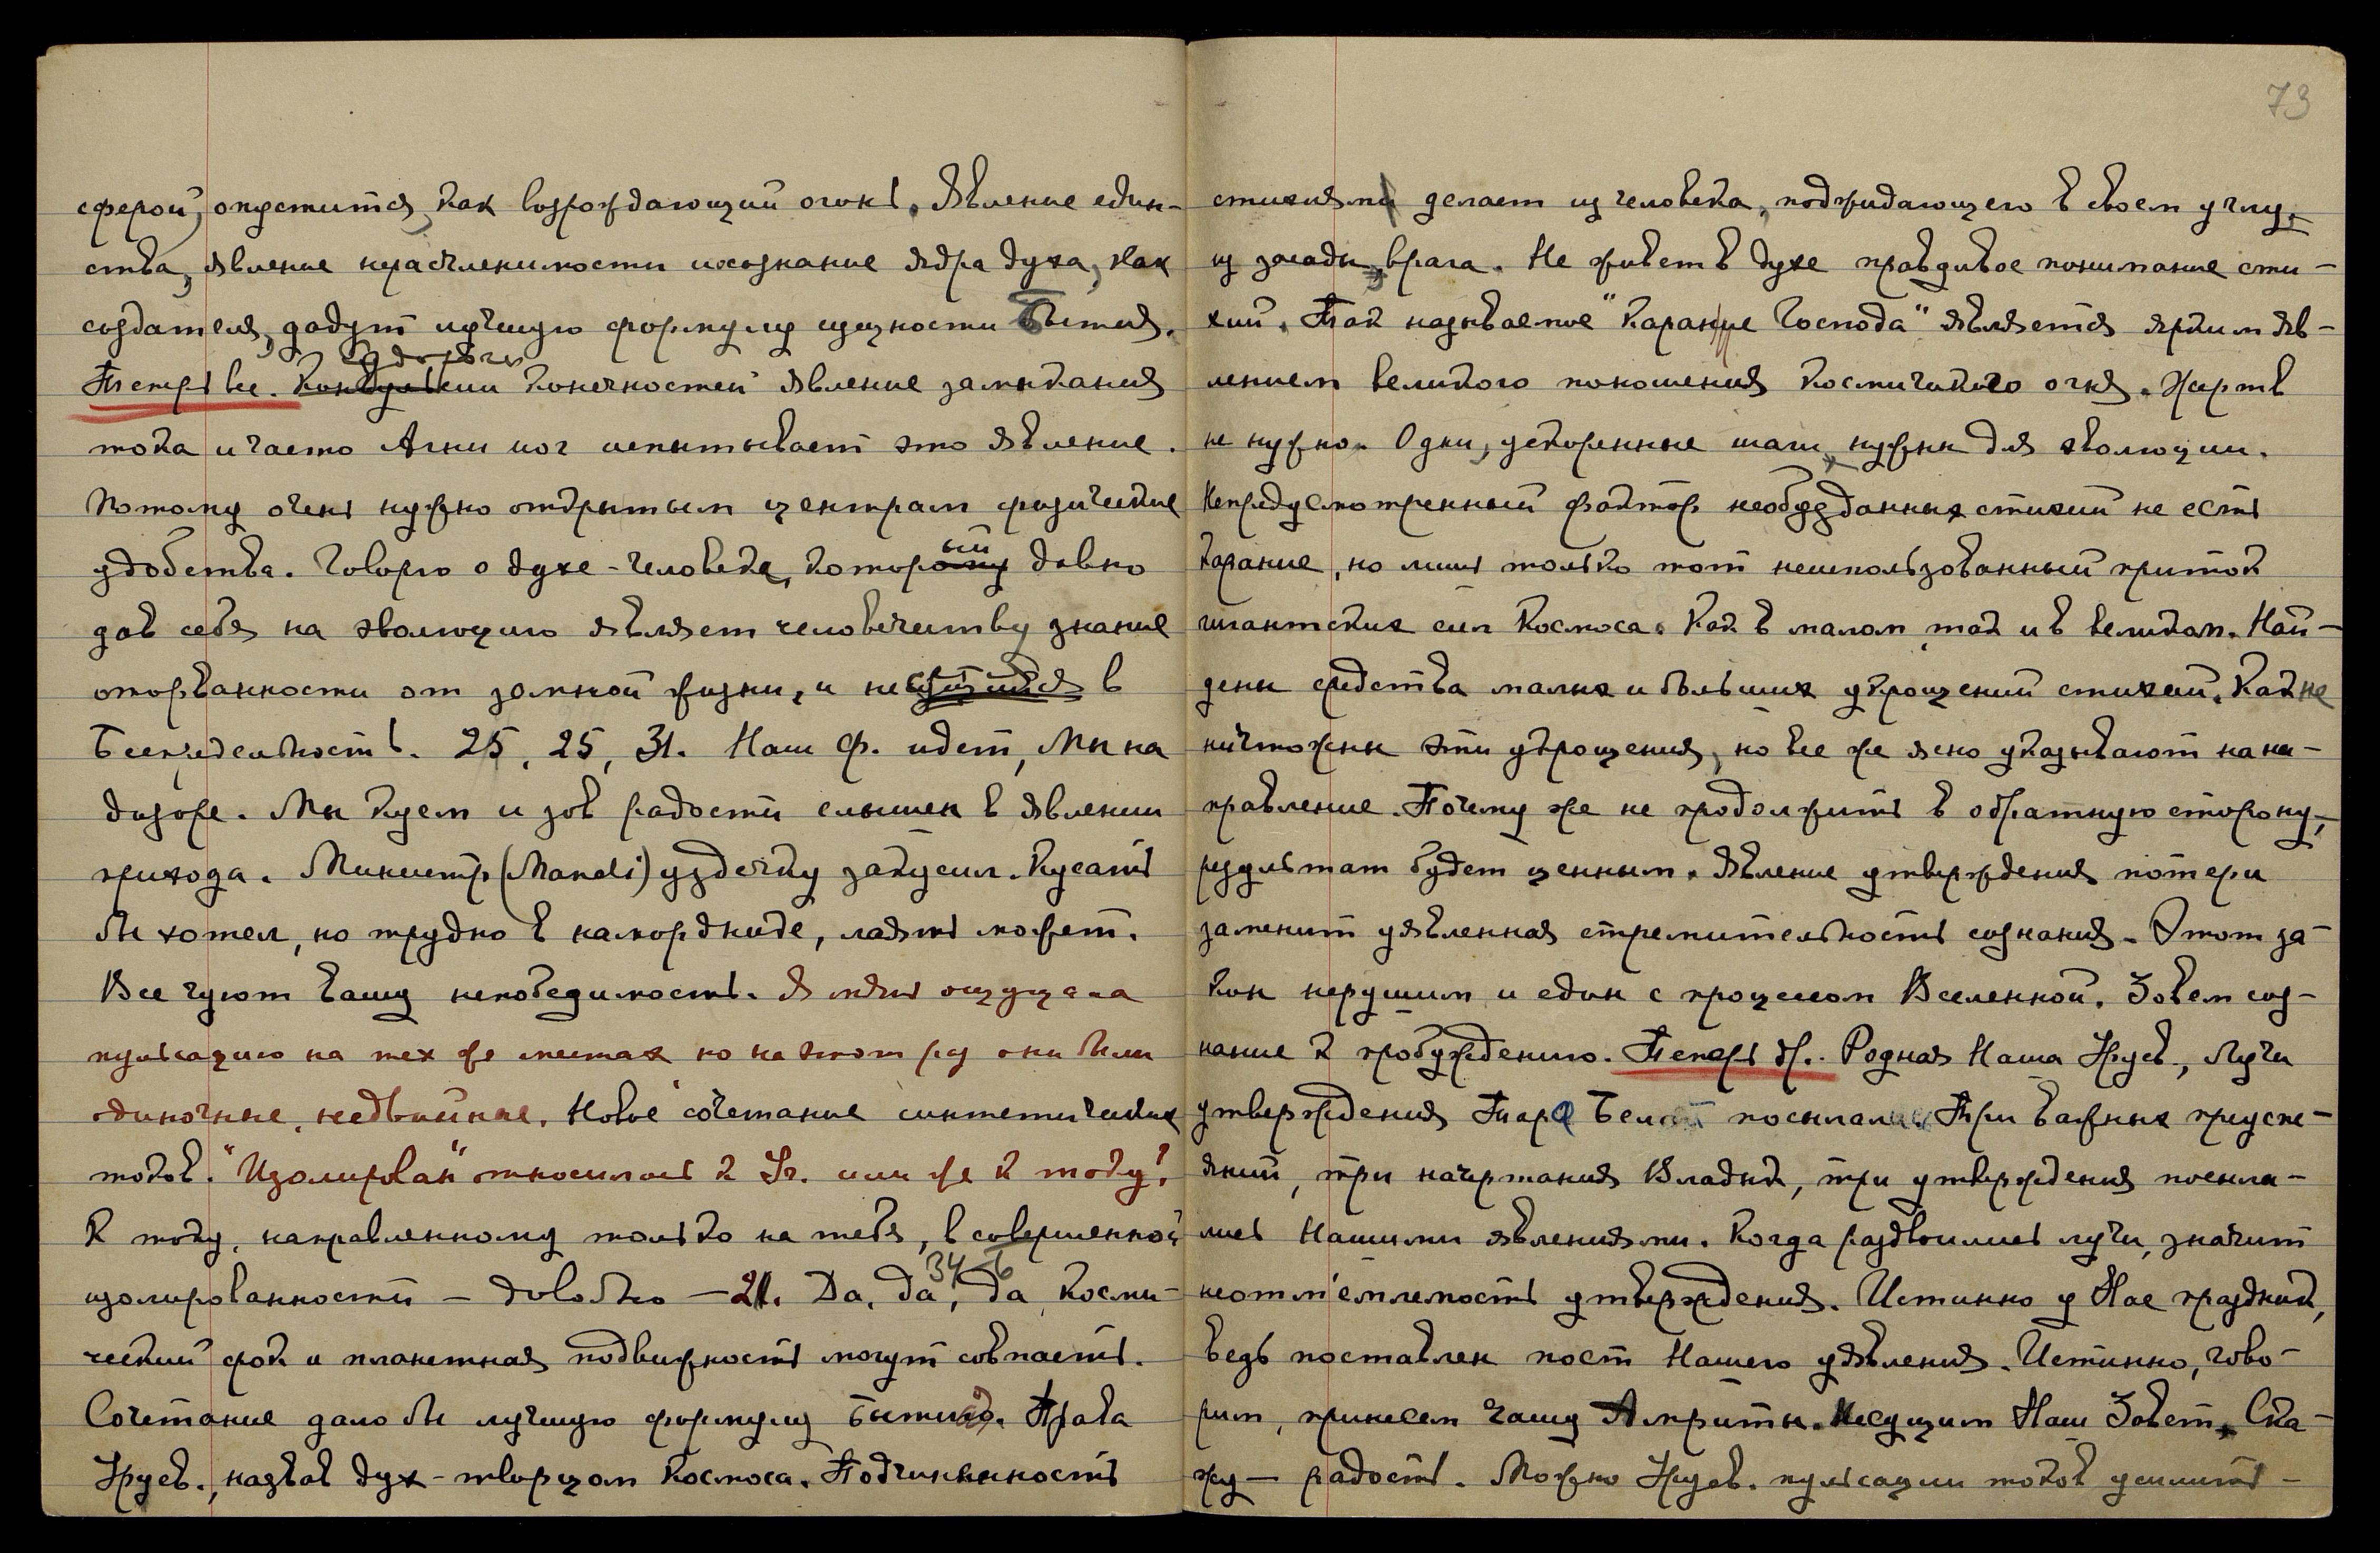 сферой, опустится, как возрождающий огонь. Явление един-
ства, явление нерасчленимости и сознание ядра духа, как
создателя, дадут лучшую формулу сущности Бытия.
Теперь все. Судороги
конечностей явление замыкания
тока и часто Агни иог испытывает это явление.
Потому очень нужно открытым центрам физические
удобства. Говорю о духе-человека, который давно
дав себя на эволюцию являет человечеству знание
оторванности от земной жизни, и в
Беспредельность. 25, 25, 31. Наш Ф. идет, Мы на
дозоре. Мы куем и зов радости слышен в явлении
прихода. Министр (Mandi) уздечку закусил. Кусать
бы хотел, но трудно в наморднике, лаять может.
Все чуют вашу непобедимость. Я опять ощущала
пульсацию на тех же местах но на этот раз они были
одиночные, не двойные. Новое сочетание синтетических
токов. "Изолирован" относилось к Ур. или же к току?
К току, направленному только на тебя, в совершенной
34 – 6
изолированности – довольно – 21. Да, да, да, Косми-
ческий фок и планетная подвижность могут совпасть.
Сочетание дало бы лучшую формулу Бытию. Права
Урусв., назвав дух-творцом Космоса. Подчиненность
73
стихиям делает из человека, поджидающего в своем углу,
из засады, врага. Не живет в духе правдивое понимание сти-
хий. Так называемое "Карание Господа" является ярким яв-
лением великого поношения космического огня. Жертв
не нужно. Одни, ускоренные шаги, нужны для эволюции.
Непредусмотренный фактор необузданных стихий не есть
карание, но лишь только тот неиспользованный приток
гигантских сил Космоса. Как в малом, так и в великом. Най-
дены средства малых и больших укрощений стихий. Как не
ничтожны эти укрощения, но все же ясно указывают на на-
правление. Почему же не продолжить в обратную сторону,
результат будет ценным. Явление утверждения потери
заменит уявленная стремительность сознания. Этот за-
кон нерушим и един с процессом Вселенной. Зовем соз-
нание к пробуждению. Теперь др. Родная Наша Урусв., Лучи
утверждения Тара Белой посылали. Три важных преуспе-
яний, три начертания Владык, три утверждения посыла-
лись Нашими явлениями. Когда раздвоились лучи, значит
неотъемлемость утверждения. Истинно у Нас праздник,
ведь поставлен пост Нашего уявления. Истинно, гово-
рим, принесем чашу Амриты. Несущим Наш Завет. Ска-
жу – радость. Можно Урусв. пульсации токов усилить –